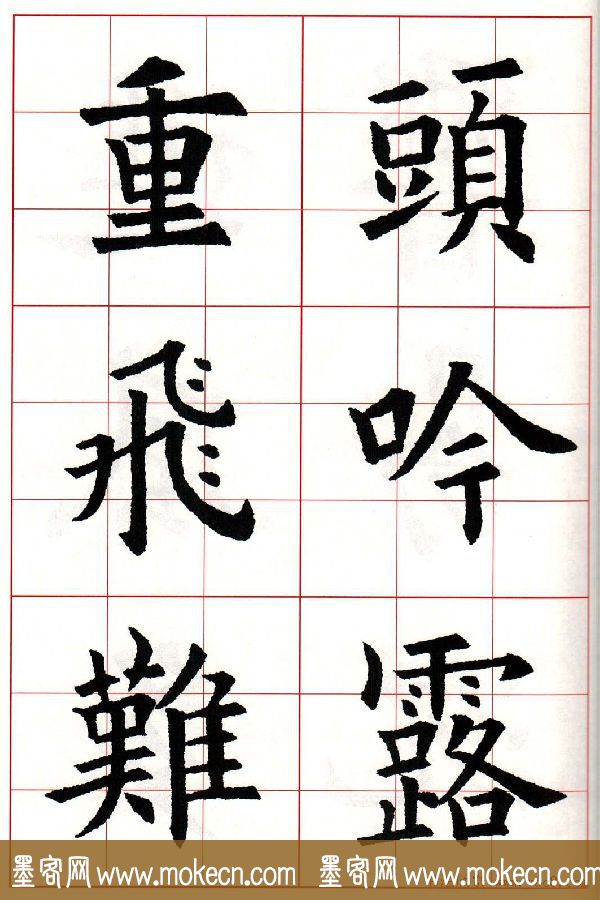 頭吟露
重飛難
墨客网 www.mokecn.com 墨客网 www.mokecn.com